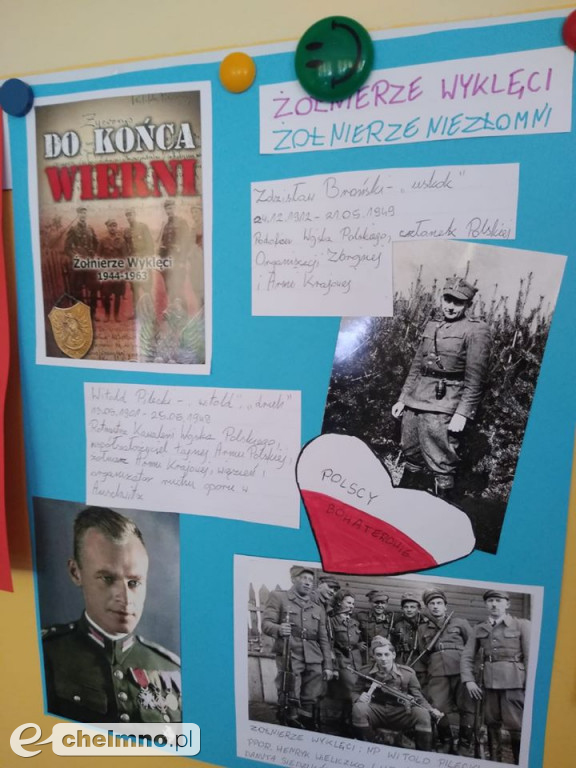 ŻOŁNIERZE WYKLĘCI
ŻOŁNIERZE NIEZŁOMNI
DO KOŃCA
WIERNI
Żołnierze Wyklęci
1944-1963
Zdzisław Broński - „uskok"
24.12.1912 - 21.05.1949
Wojska Polskiego, członek Polskiej
Organizacji Zbrojnej
i Armii Krajowej
Witold Pilecki - „witold", „druh"
13.05.1901 - 25.05.1948
Rotmistrz Kawalerii Wojska Polskiego,
współzałożyciel tajnej Armii Polskiej,
żołnierz Armii Krajowej, więzień i
organizator ruchu oporu w
Auschwitz
POLSCY
BOHATEROWIE
ŻOŁNIERZE WYKLĘCI: NP. WITOLD PILECKI
PPOR. HENRYK
DANUTA
e-chelmno.pl